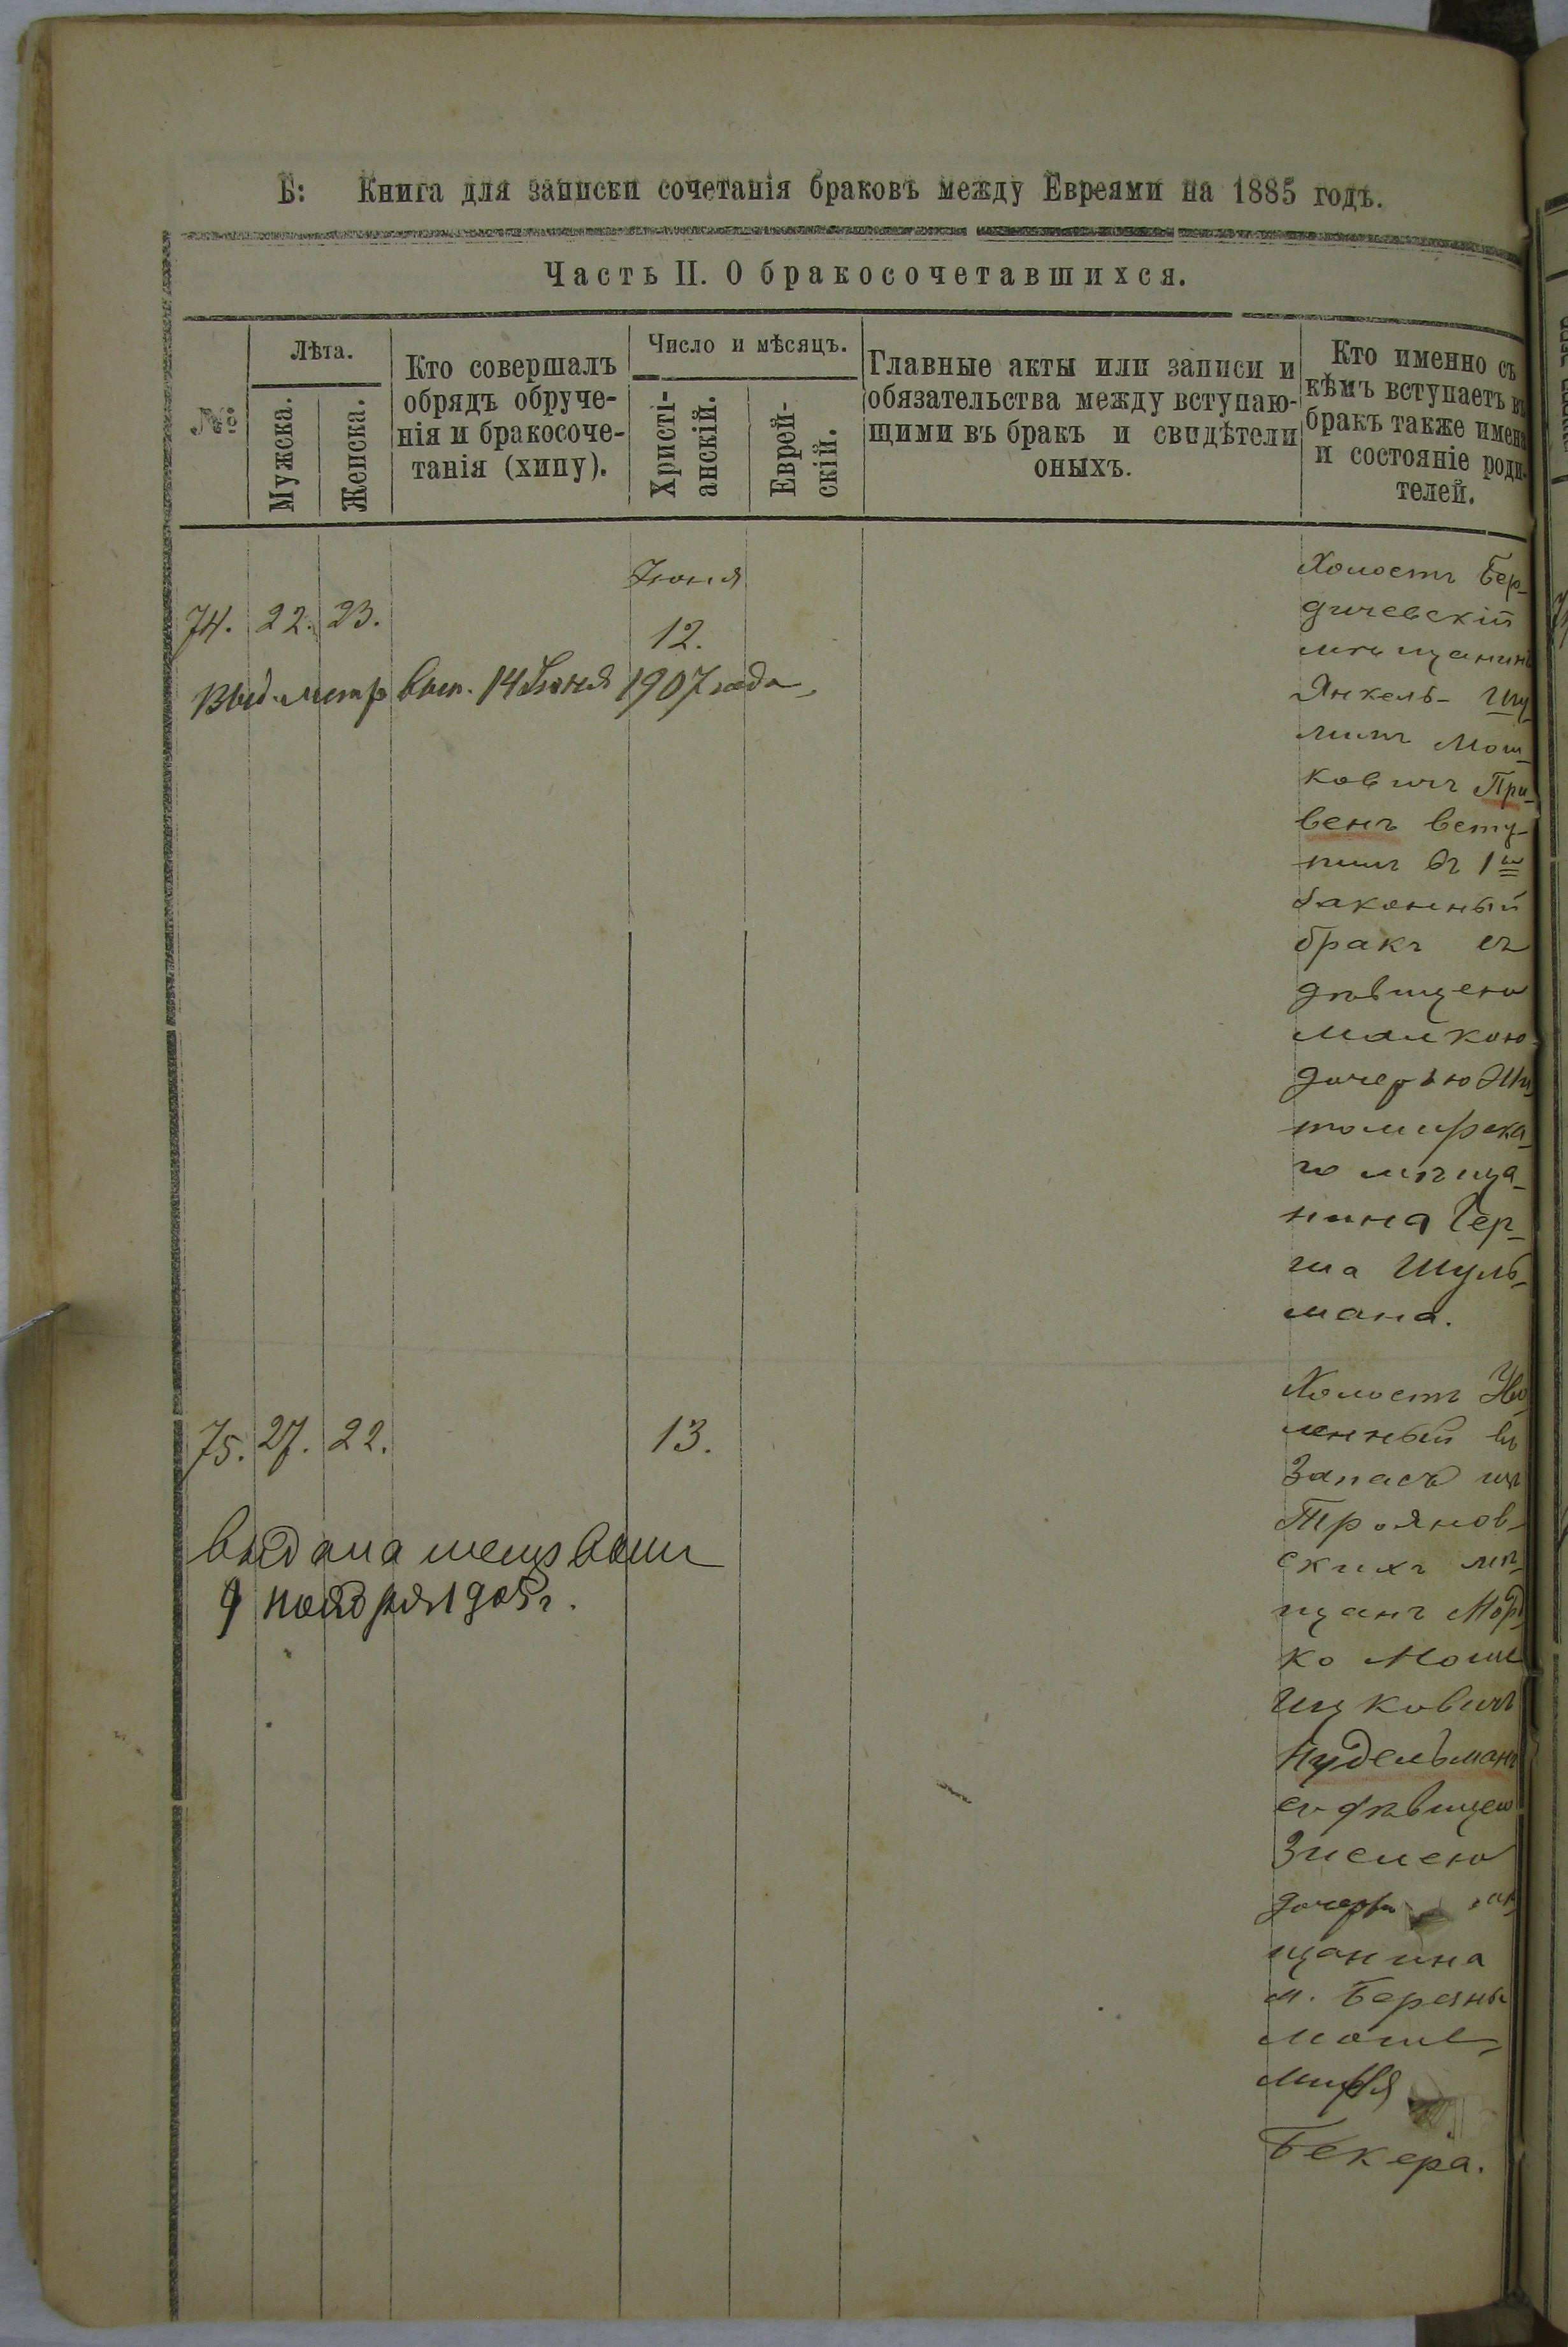 Б: Книга для записки сочетанія браковъ между Евреями на 1885 годъ.
Часть II. О бракосочетавшихся.
№
Лѣта.
Мужска.
Женска.
Кто совершалъ
обрядъ обруче-
нія и бракосоче-
танія (хипу).
Число и мѣсяцъ.
Христі-
анскій.
Еврей-
скій.
Главные акты или записи и
обязательства между вступаю-
щими въ бракъ и свидѣтели
оныхъ.
Кто именно съ
кѣмъ вступаетъ въ
бракъ также имена
и состояніе роди-
телей.
Іюня
74. 22. 23. 12.
Выд. метр вып. 14 Іюня 1907 года
Холостъ Бер-
дичевскій
мѣщанинъ
Янкель-
Мош-
ковичъ При-
венъ всту-
пилъ въ 1й
законный
бракъ съ
дѣвицею
Малкою
дочерью Жи-
томирска-
го мѣща-
нина Гер-
ша Шуль-
мана.
75. 27. 22. 13.
выдана метр вып
9 ноября 1905 г.
Холостъ Уво-
ленный въ
Запасъ изъ
Трояновъ-
скихъ мѣ-
щанъ Морд-
ко Мошк
Ицковичъ
Нудельманъ
съ дѣвицею
Зислею
дочерью
щанина
м.
Мошк
Бекера.